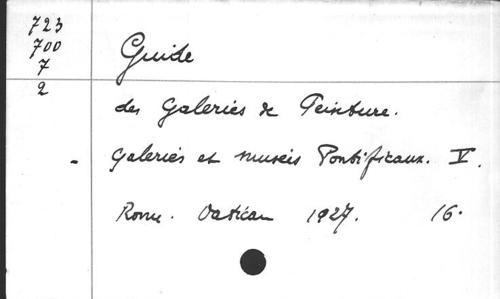 723
700
7
2
Guide
des Galeries de Peinture.
- Galeries et musées Pontificaux. V.
Rome. Vatican 1927. 16.